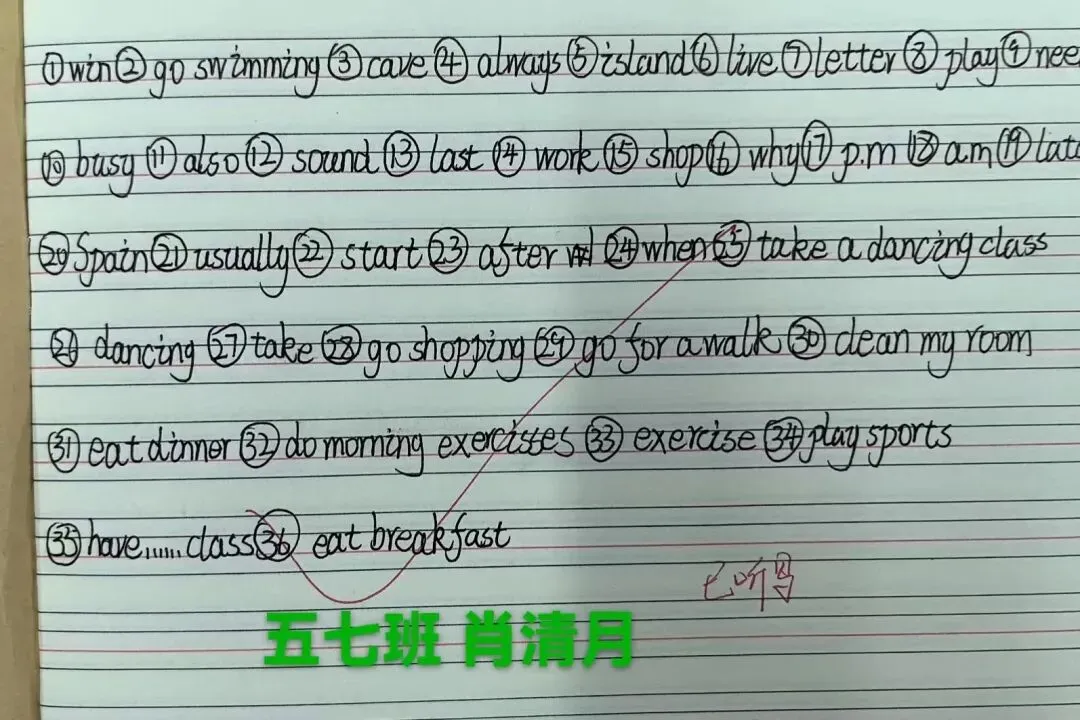 ①win②go swimming③cave④always⑤island⑥live⑦letter⑧play⑨nee
⑩busy⑪also⑫sound⑬last⑭work⑮shop⑯why⑰p.m⑱am⑲late
⑳Spain㉑usually㉒start㉓after㉔when㉕take a dancing class
㉖dancing㉗take㉘go shopping㉙go for a walk㉚clean my room
㉛eat dinner㉜do morning exercises㉝exercise㉞play sports
㉟have......class㊱eat breakfast
已听写
五七班 肖清月